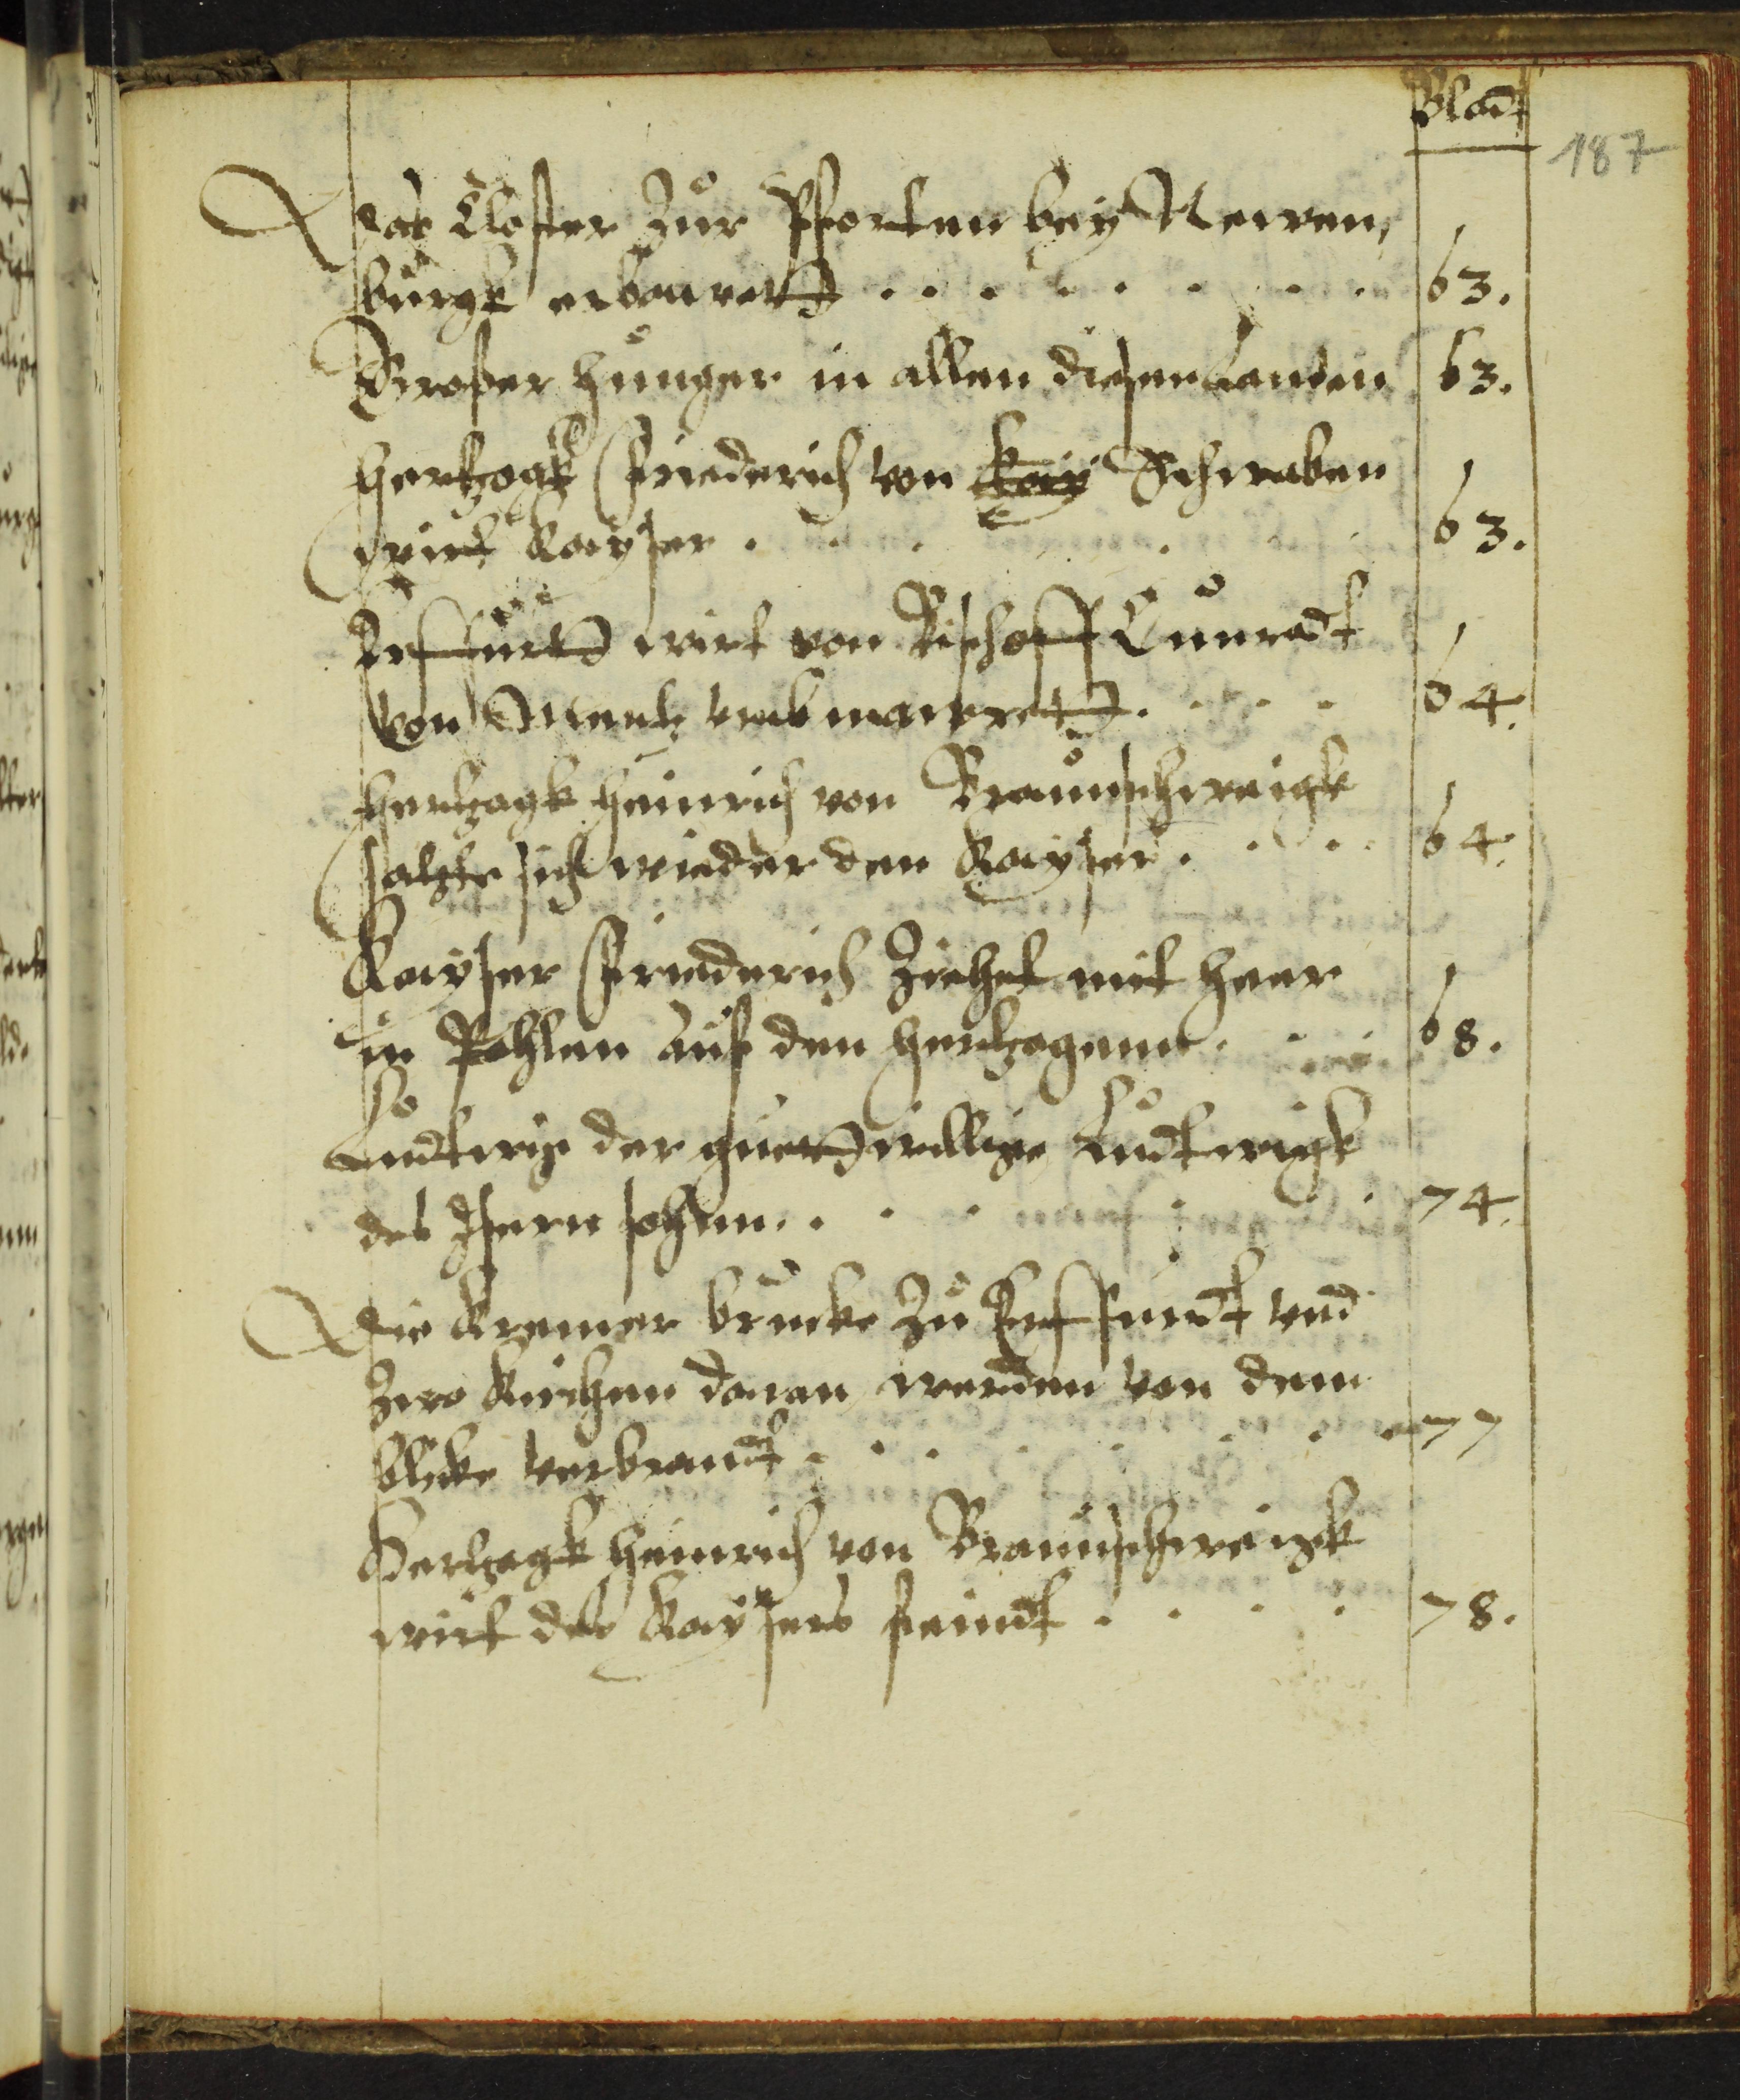 Bladt
187
Das Closter zur Pforten bey Newen,
burgk erbawett . . . . . . . . 63.
Großer hunger in allen diesen Landen 63.
Hertzogk Friederich von Kaÿ Schwaben
wirt Kayser . . . . . . . 63.
Erffurtt wirt von Bischoff Cunradt
von Mentz umbmawrett . . . . 64.
Hertzogk Heinrich von Braunschweigk
satzte sich wieder den Kayser . . . 64.
Kayser Friederich Ziehet mit heer
in Pohlen auf den Hertzogenn . . . 68.
Ludtwig der guettwillige Ludtwigk
des Isern sohnn . . . . . 74.
Die Kremer brucke Zu Erffurdt und
zwo Kirchen daran werden von dem
blicke verbrandt . . . . . . . 77
Hertzogk Heinrich von Braunschweigk
wirt des Kaysers feindt . . . . 78.